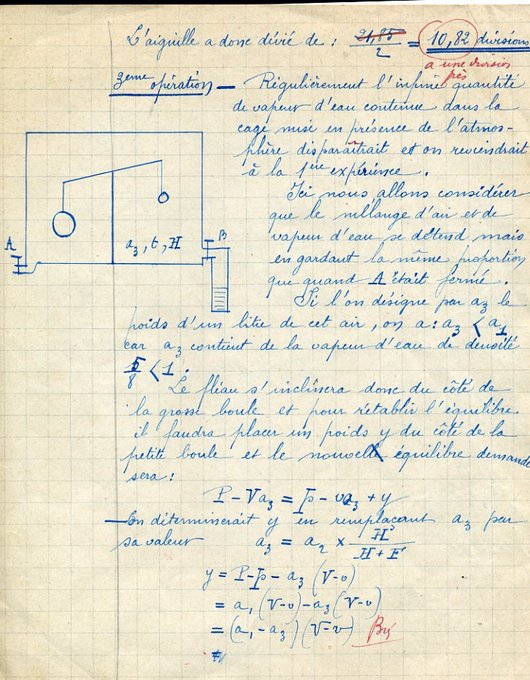 L'aiguille a donc dévié de : 21,85/2 = 10,82 divisions
à une division
près
3eme opération — Régulièrement l'infime quantité
de vapeur d'eau contenue dans la
cage mise en présence de l'atmos-
phère disparaîtrait et on reviendrait
à la 1ère expérience.
Ici nous allons considérer
que le mélange d'air et de
vapeur d'eau se détend mais
en gardant la même proportion
que quand A était fermé.
A
B
a₃, t, H
Si l'on désigne par a₃ le
poids d'un litre de cet air, on a : a₃ < a₁
car a₃ contient de la vapeur d'eau de densité
5/8 < 1.
Le fléau s'inclinera donc du côté de
la grosse boule et pour rétablir l'équilibre
il faudra placer un poids y du côté de la
petite boule et le nouvel équilibre demande
sera :
P - Va₃ = p - va₃ + y
On déterminerait y en remplaçant a₃ par
sa valeur a₃ = a₂ × H/H + F
y = P - p - a₃ (V-v)
= a₁ (V-v) - a₃ (V-v)
= (a₁ - a₃) (V-v) Bij